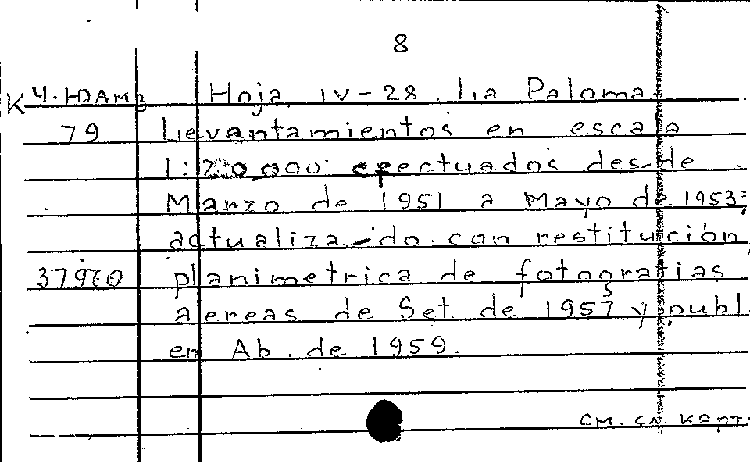 8
Hoja IV-28. La Paloma.
79 Levantamientos en escala
1:20,000 efectuados desde
Marzo de 1951 a Mayo de 1953;
actualizado con restitución
37960 planimetrica de fotografias
aereas de Set. de 1957 y publ.
en Ab. de 1959.
см. сл карт.